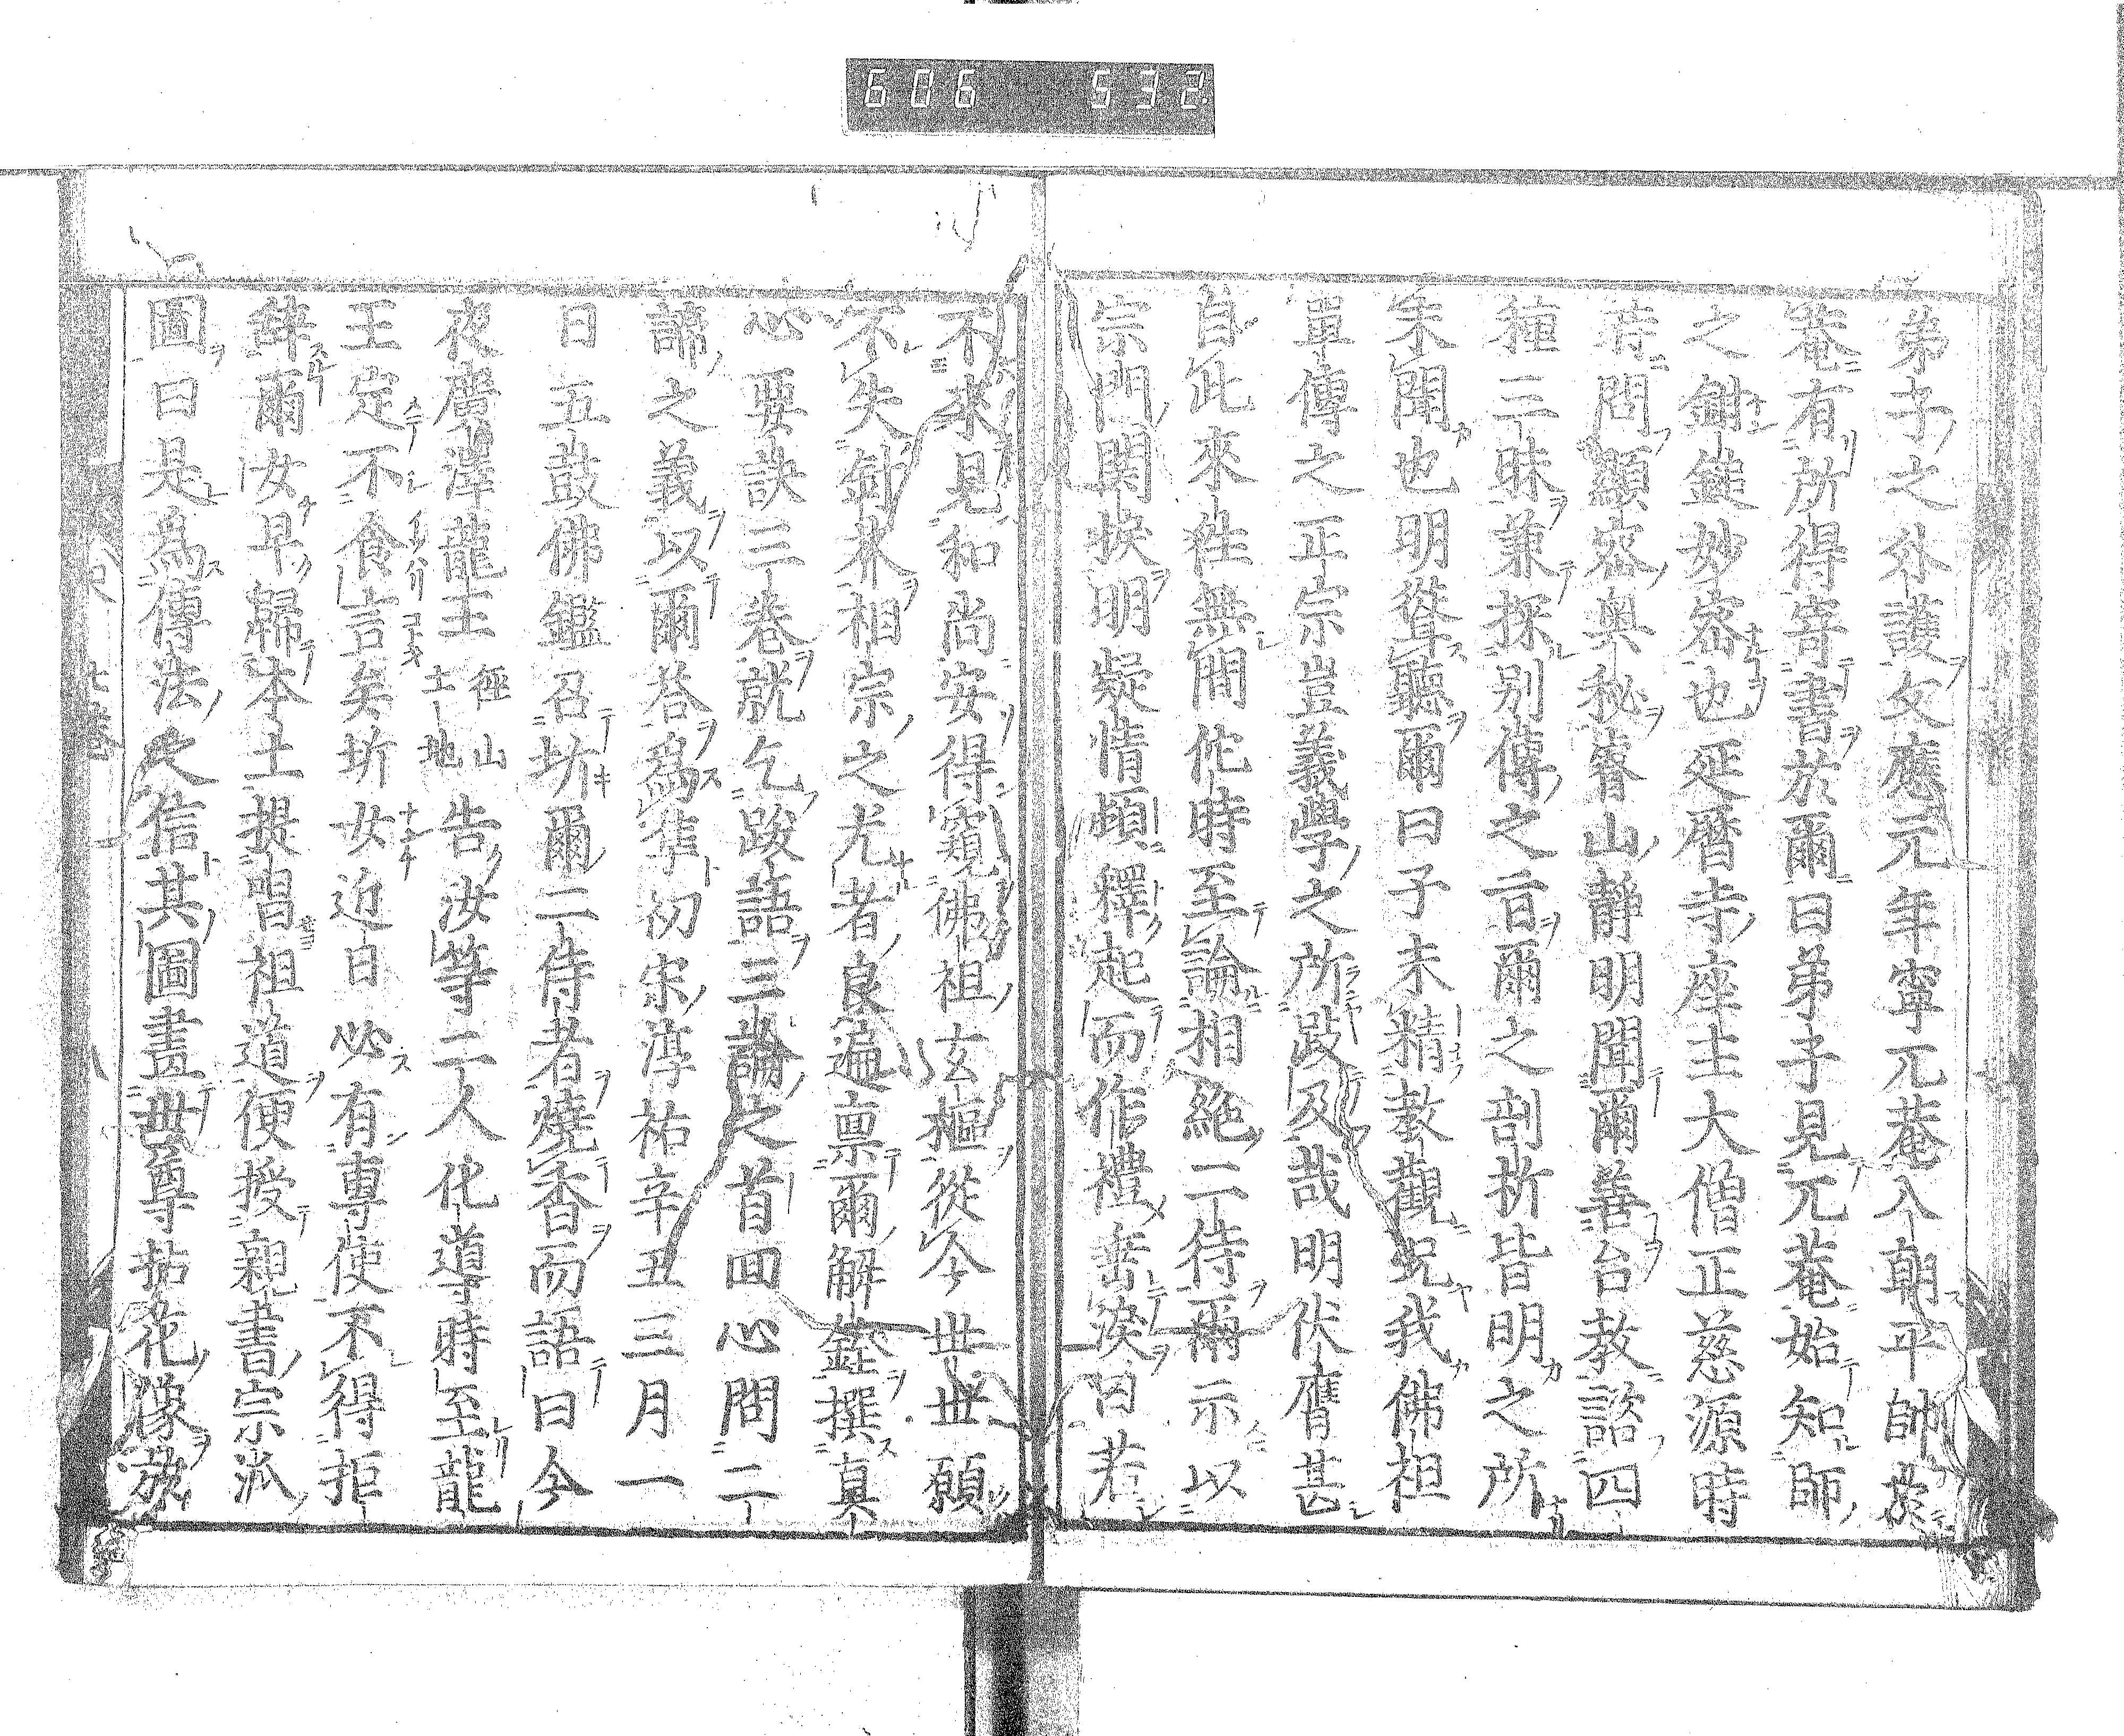 606 532
弟子之外護文應元年寧兀菴入朝平帥於
菴有所得寄書於爾曰弟子見兀菴始知師
之鉗鎚妙密也延暦寺座主大僧正慈源時
時問顯密奥秘睿山靜明聞爾善台教諮四
種三昧兼探別傳之旨爾之剖析皆明之所
未聞也明聳聽爾曰子未精教觀況我佛祖
單傳之正宗豈義學之所跂及哉明伏膺甚
自此來往無間佗時至論相絶二待爾示以
宗門関捩明凝情頓釋起而作禮垂淚曰若
不來見和尚安得窺佛祖玄樞從今世世願
不失針芥相宗之尤者良遍禀爾解鏗撰真
心要訣三巻就乞跋語三論之首回心問二
諦之義以爾荅爲隼初宋淳祐辛丑三月一
日五鼓佛鑑召圻爾二侍者燒香而語曰今
夜廣澤龍王徑山土地告汝等二人化導時至龍
王定不食言矣圻女近日必有專使不得拒
辭爾女早歸本土提唱祖道便授親書宗派
圖曰是爲傳法之信其圖畫世尊拈花像族
七巻